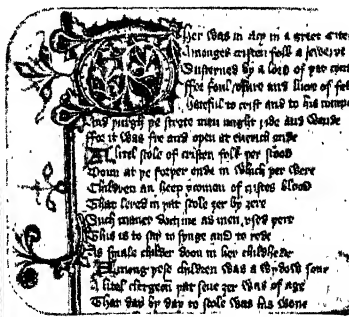 Ther was in Asy in a greet cite
Amonges cristen folk a Iewerye
Susteyned by a lord of þat contr
ffor foul vsure and lucre of fel
Hateful to crist and to his compa
And þurgh þe strete men might ride and wende
ffor it was fre and open at euerich ende
A litel scole of cristen folk þer stood
Doun at þe forþer ende in which þer were
Children an heep ycomen of cristes blood
That lered in þat scole ȝer by ȝere
Such maner doctrine as men vsed þere
This is to say to synge and to rede
As smale childer doon in her childhede
Among þese children was a wydow sone
A litel clergeon þat seue ȝer was of age
That day by day to scole was his wone